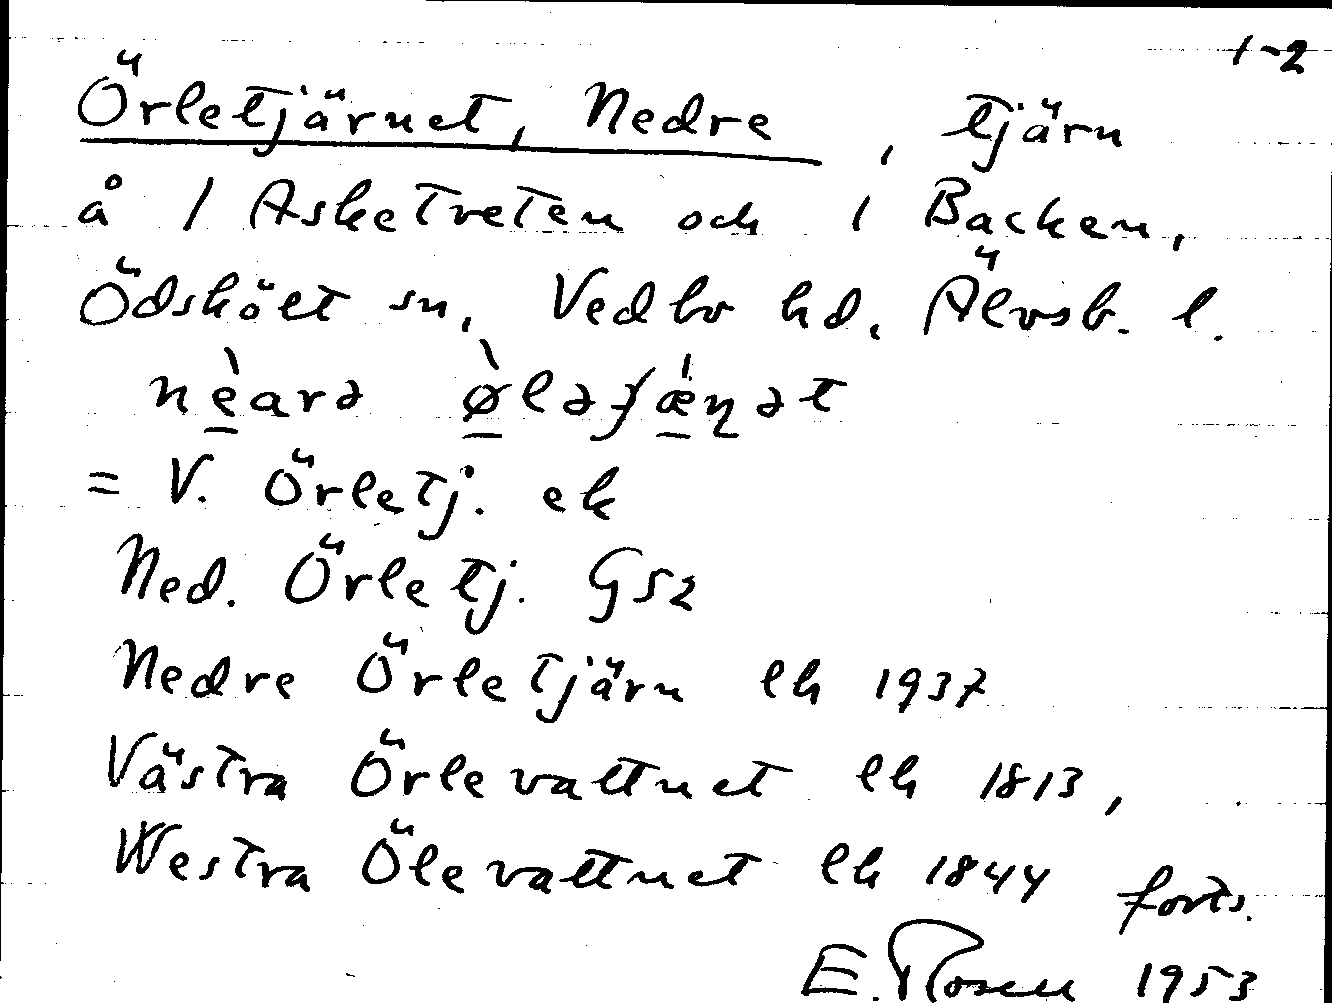 1-2
Örletjärnet, Nedre, tjärn
å 1 Asketveten och 1 Backen,
Ödskölt sn, Vedbo hd, Älvsb. l.
= V. Örletj. ek
Ned. Örletj. GS2
Nedre Örletjärn lh 1937
Västra Örlevattnet lh 1813,
Westra Ölevattnet lh 1844 forts.
E. Rosen 1953